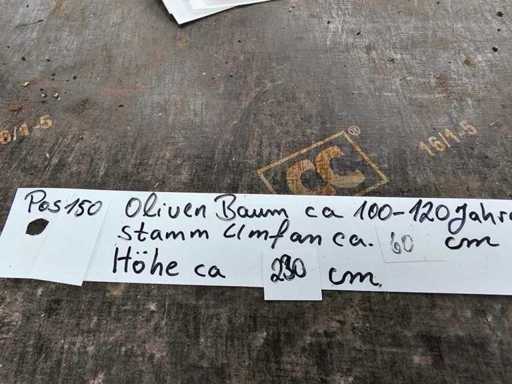 6/1-5
CC ®
16/1-5
Pos 150 Oliven Baum ca 100-120 Jahre
stamm Umfan ca. 60 cm
Höhe ca 230 cm.